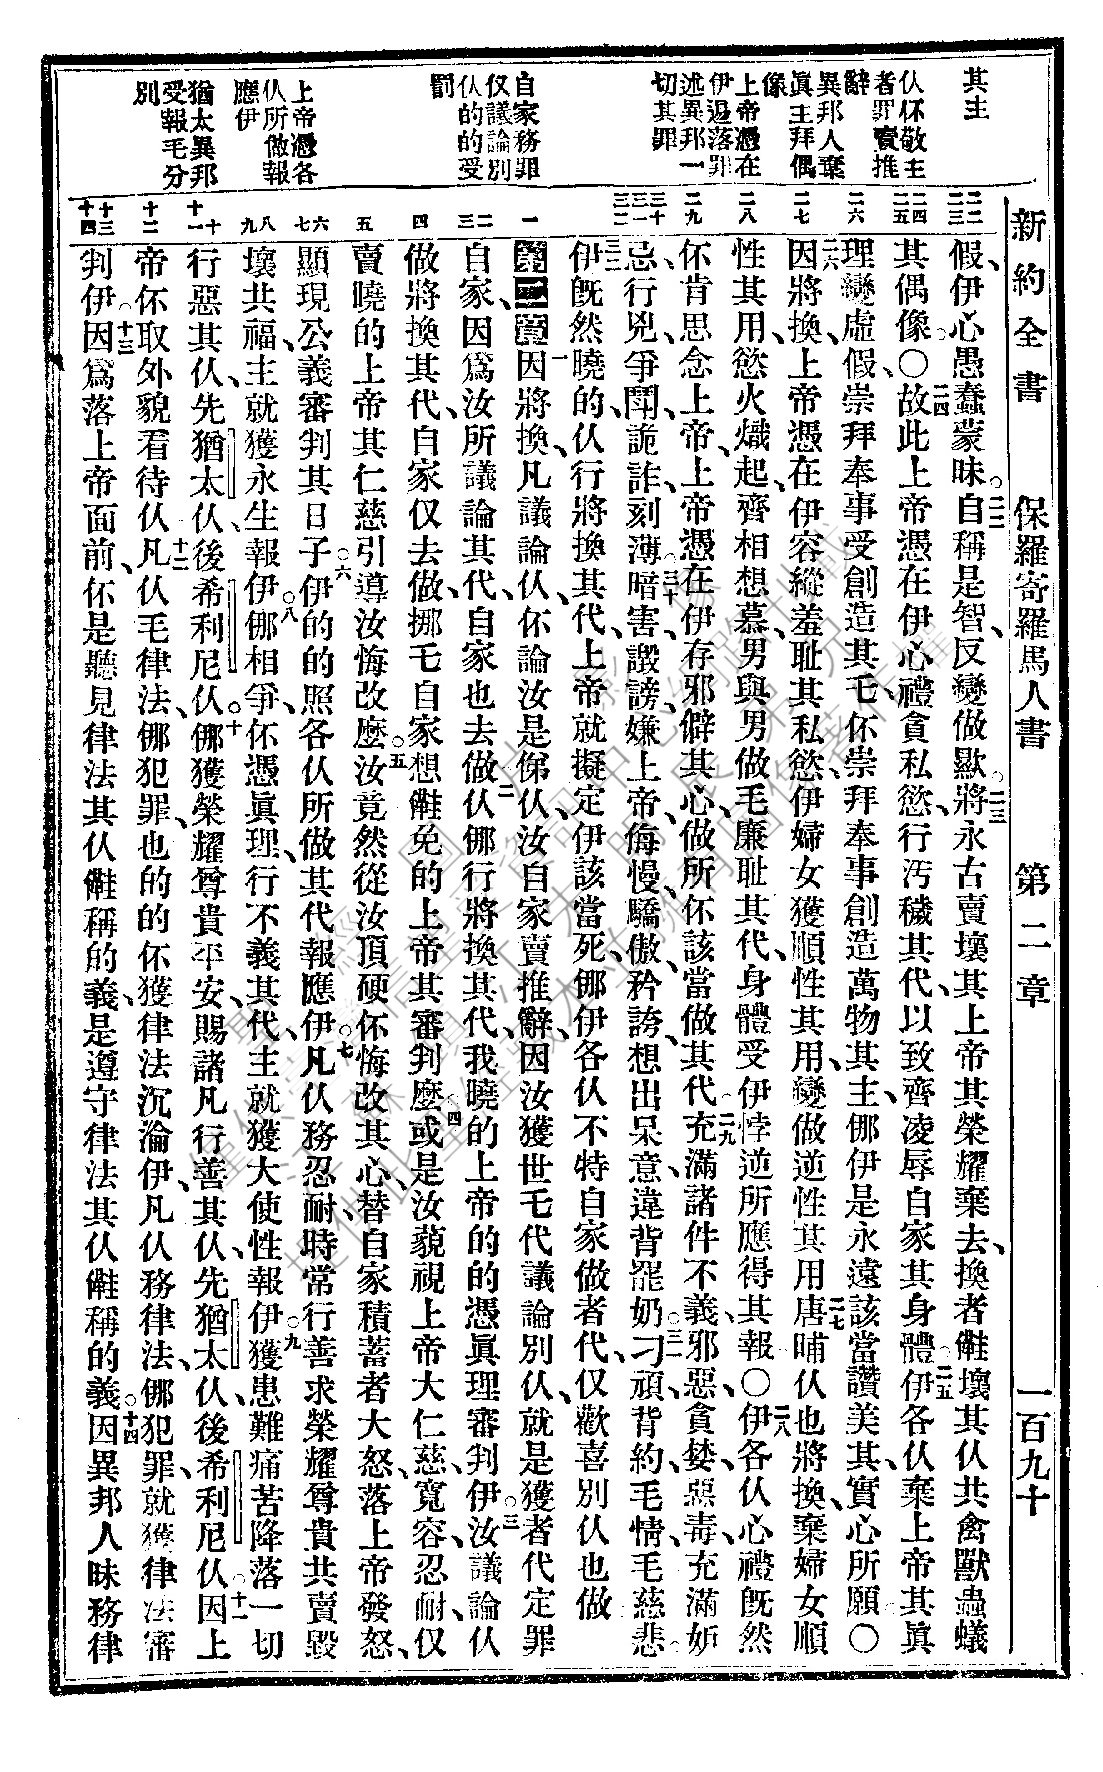 新約全書 保羅寄羅馬人書 第二章 一百九十
其主
仈伓敬主
者罪賣推
辭
異邦人棄
眞主拜偶
像
上帝憑在
伊遏落罪
述異邦一
切其罪
自家務罪
仅議論別
仈的的受
罰
上帝憑各
仈所做報
應伊
猶太異邦
受報毛分
別
二二 二三 二四 二五 二六 二七 二八 二九 三十 三一 三二 一 二 三 四 五 六 七 八 九 十 十一 十二 十三 十四
假、伊心愚蠢蒙昧。二二自稱是智、反變做歟、二三將永古賣壞其上帝其榮耀棄去、換者㒰壞其仈共禽獸蟲蟻
其偶像。〇二四故此上帝憑在伊心禮貪私慾、行汚穢其代、以致齊凌辱自家其身體。二五伊各仈棄上帝其眞
理變虛假、崇拜奉事受創造其乇、伓崇拜奉事創造萬物其主、㑚伊是永遠該當讚美其、實心所願。〇
二六因將換、上帝憑在伊容縱羞耻其私慾、伊婦女獲順性其用、變做逆性其用、二七唐晡仈也將換、棄婦女順
性其用、慾火熾起、齊相想慕、男與男做毛廉耻其代、身體受伊悖逆所應得其報。〇二八伊各仈心禮旣然
伓肯思念上帝、上帝憑在伊存邪僻其心、做所伓該當做其代、二九充滿諸件不義、邪惡、貪婪、惡毒、充滿妬
忌、行兇、爭鬥、詭詐、刻薄、三十暗害、譭謗、嫌上帝、侮慢、驕傲、矜誇、想出呆意、違背罷奶、三一刁頑、背約、毛情、毛慈悲。
三二伊旣然曉的、仈行將換其代、上帝就擬定伊該當死、㑚伊各仈不特自家做者代、仅歡喜別仈也做
第二章一因將換、凡議論仈、伓論汝是㑚仈、汝自家賣推辭、因汝獲世乇代議論別仈、就是獲者代定罪
自家、因爲汝所議論其代、自家也去做、二仈㑚行將換其代、我曉的上帝的的憑眞理審判伊。三汝議論仈
做將換其代、自家仅去做、挪乇自家想㒰免的上帝其審判麽、四或是汝藐視上帝大仁慈、寬容、忍耐、仅
賣曉的上帝其仁慈引導汝悔改麽。五汝竟然從汝頂硬伓悔改其心、替自家積蓄者大怒、落上帝發怒、
顯現公義審判其日子。六伊的的照各仈所做其代報應伊、七凡仈務忍耐、時常行善、求榮耀尊貴共賣毀
壞共福、主就獲永生報伊。八㑚相爭、伓憑眞理、行不義其代、主就獲大使性報伊。九獲患難痛苦降落一切
行惡其仈、先猶太仈、後希利尼仈。十㑚獲榮耀尊貴平安、賜諸凡行善其仈、先猶太仈後希利尼仈。十一因上
帝伓取外貌看待仈。十二凡仈毛律法、㑚犯罪、也的的伓獲律法沉淪伊、凡仈務律法、㑚犯罪、就獲律法審
判伊。十三因爲落上帝面前、伓是聽見律法其仈㒰稱的義、是遵守律法其仈㒰稱的義。十四因異邦人昧務律